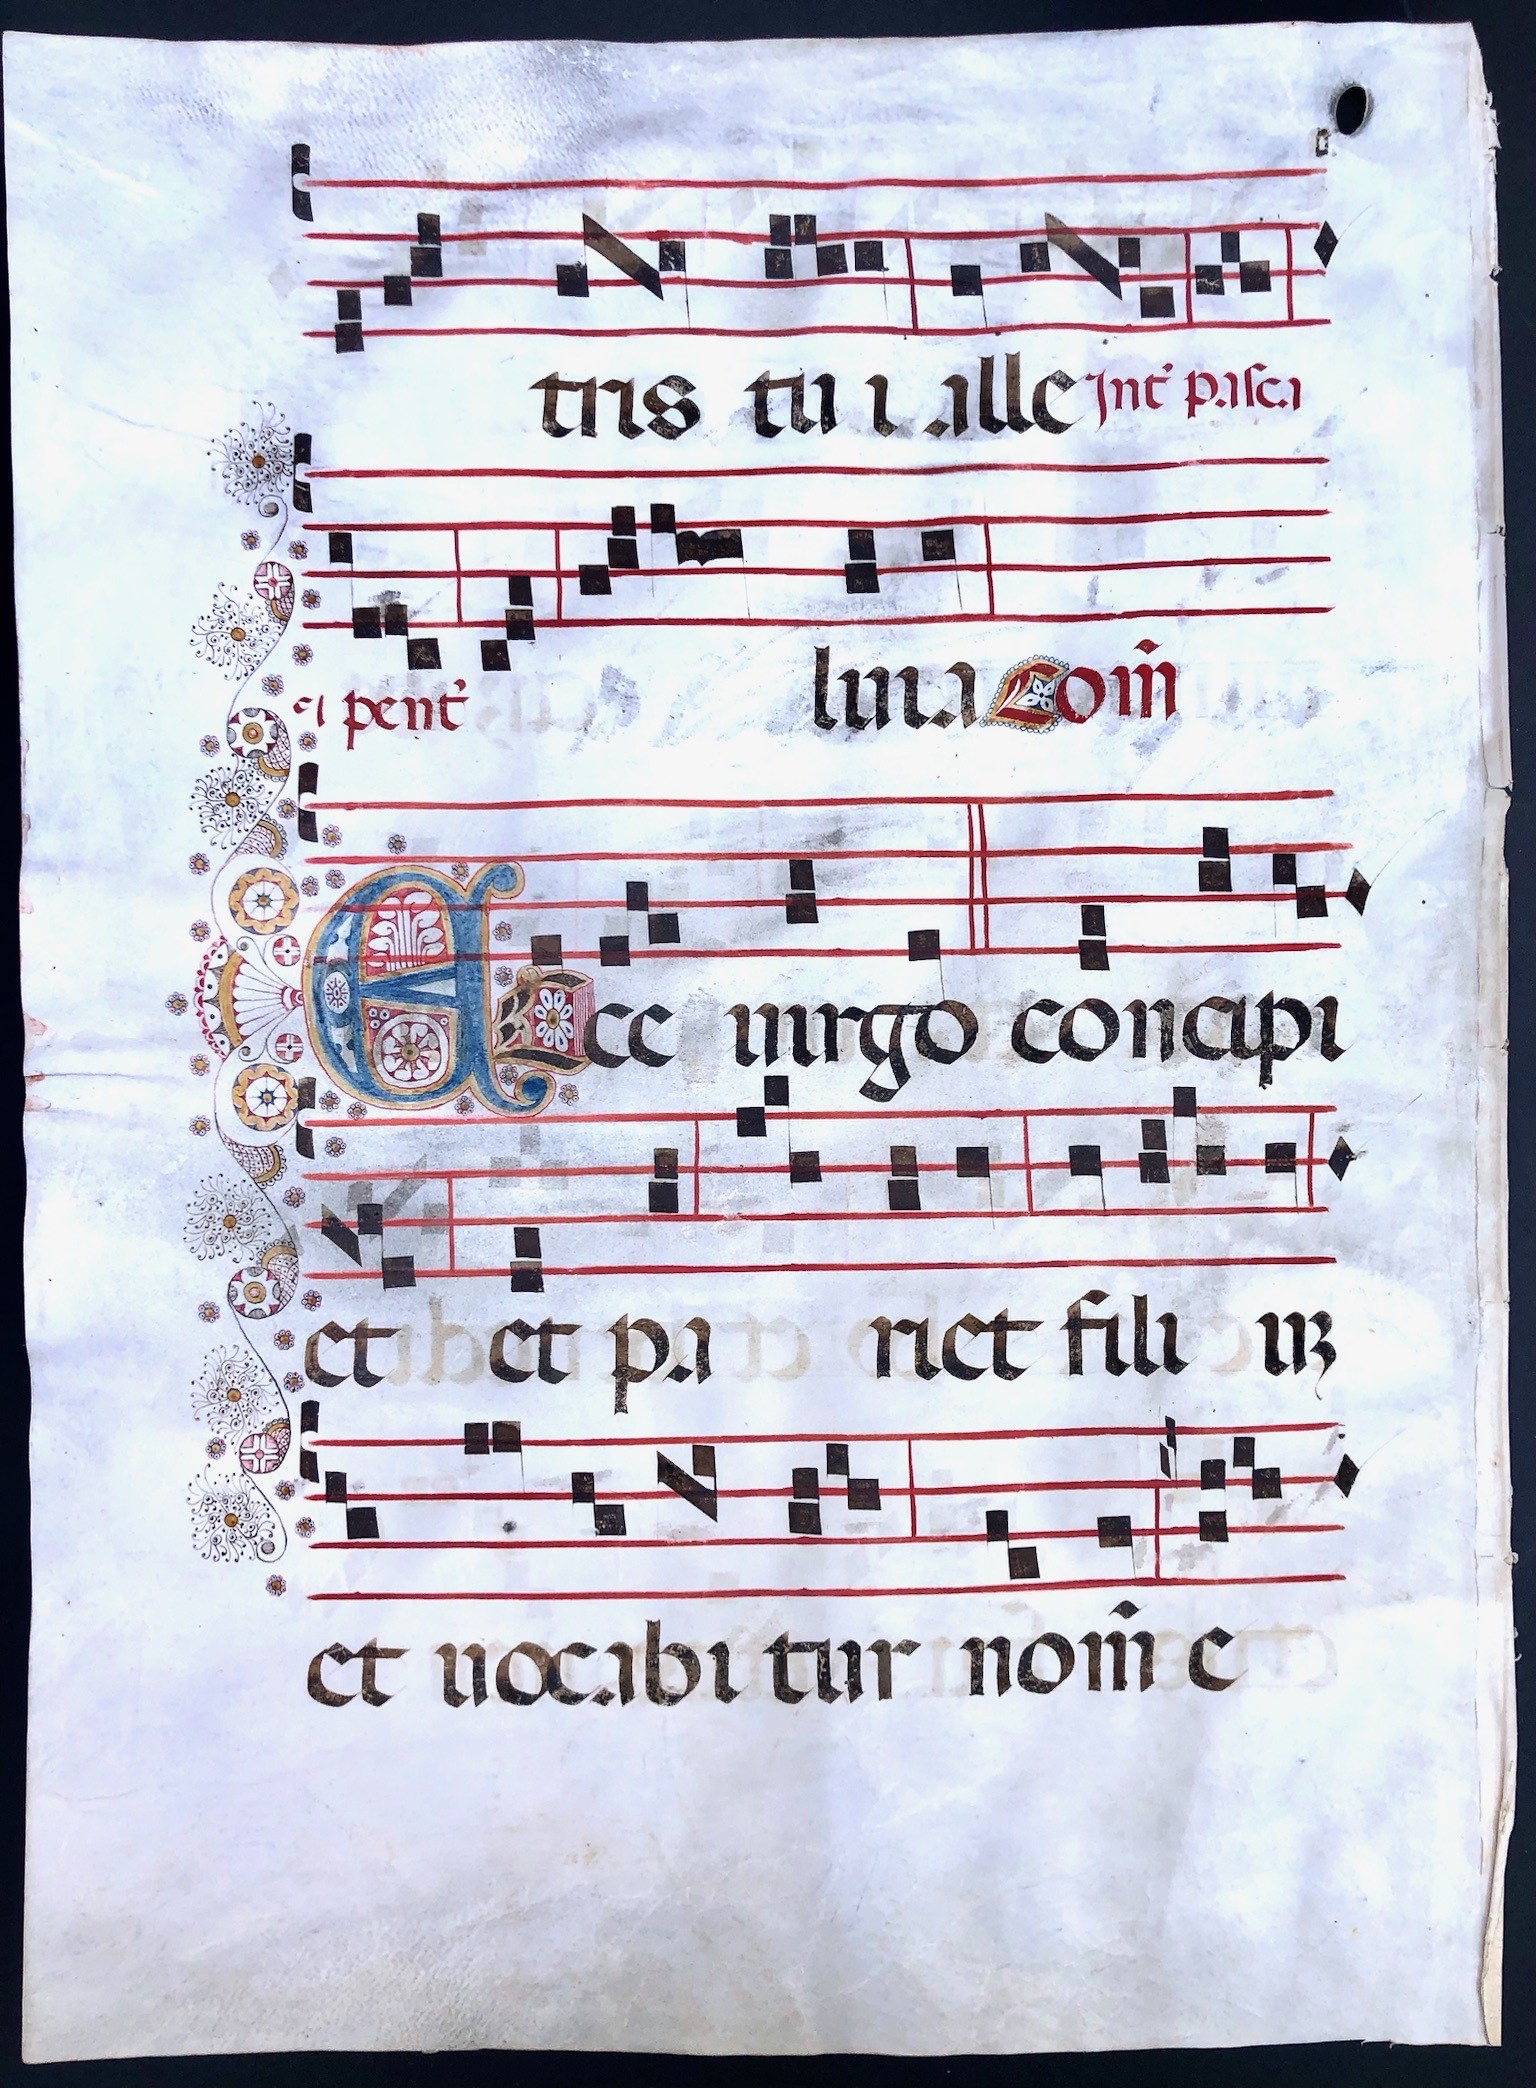 tris tu i alle Int᷑ pasca
et pent᷑ luia Com̄
Ecce uirgo concipi
et et pa riet fili uꝫ
et uocabi tur nom̄ e